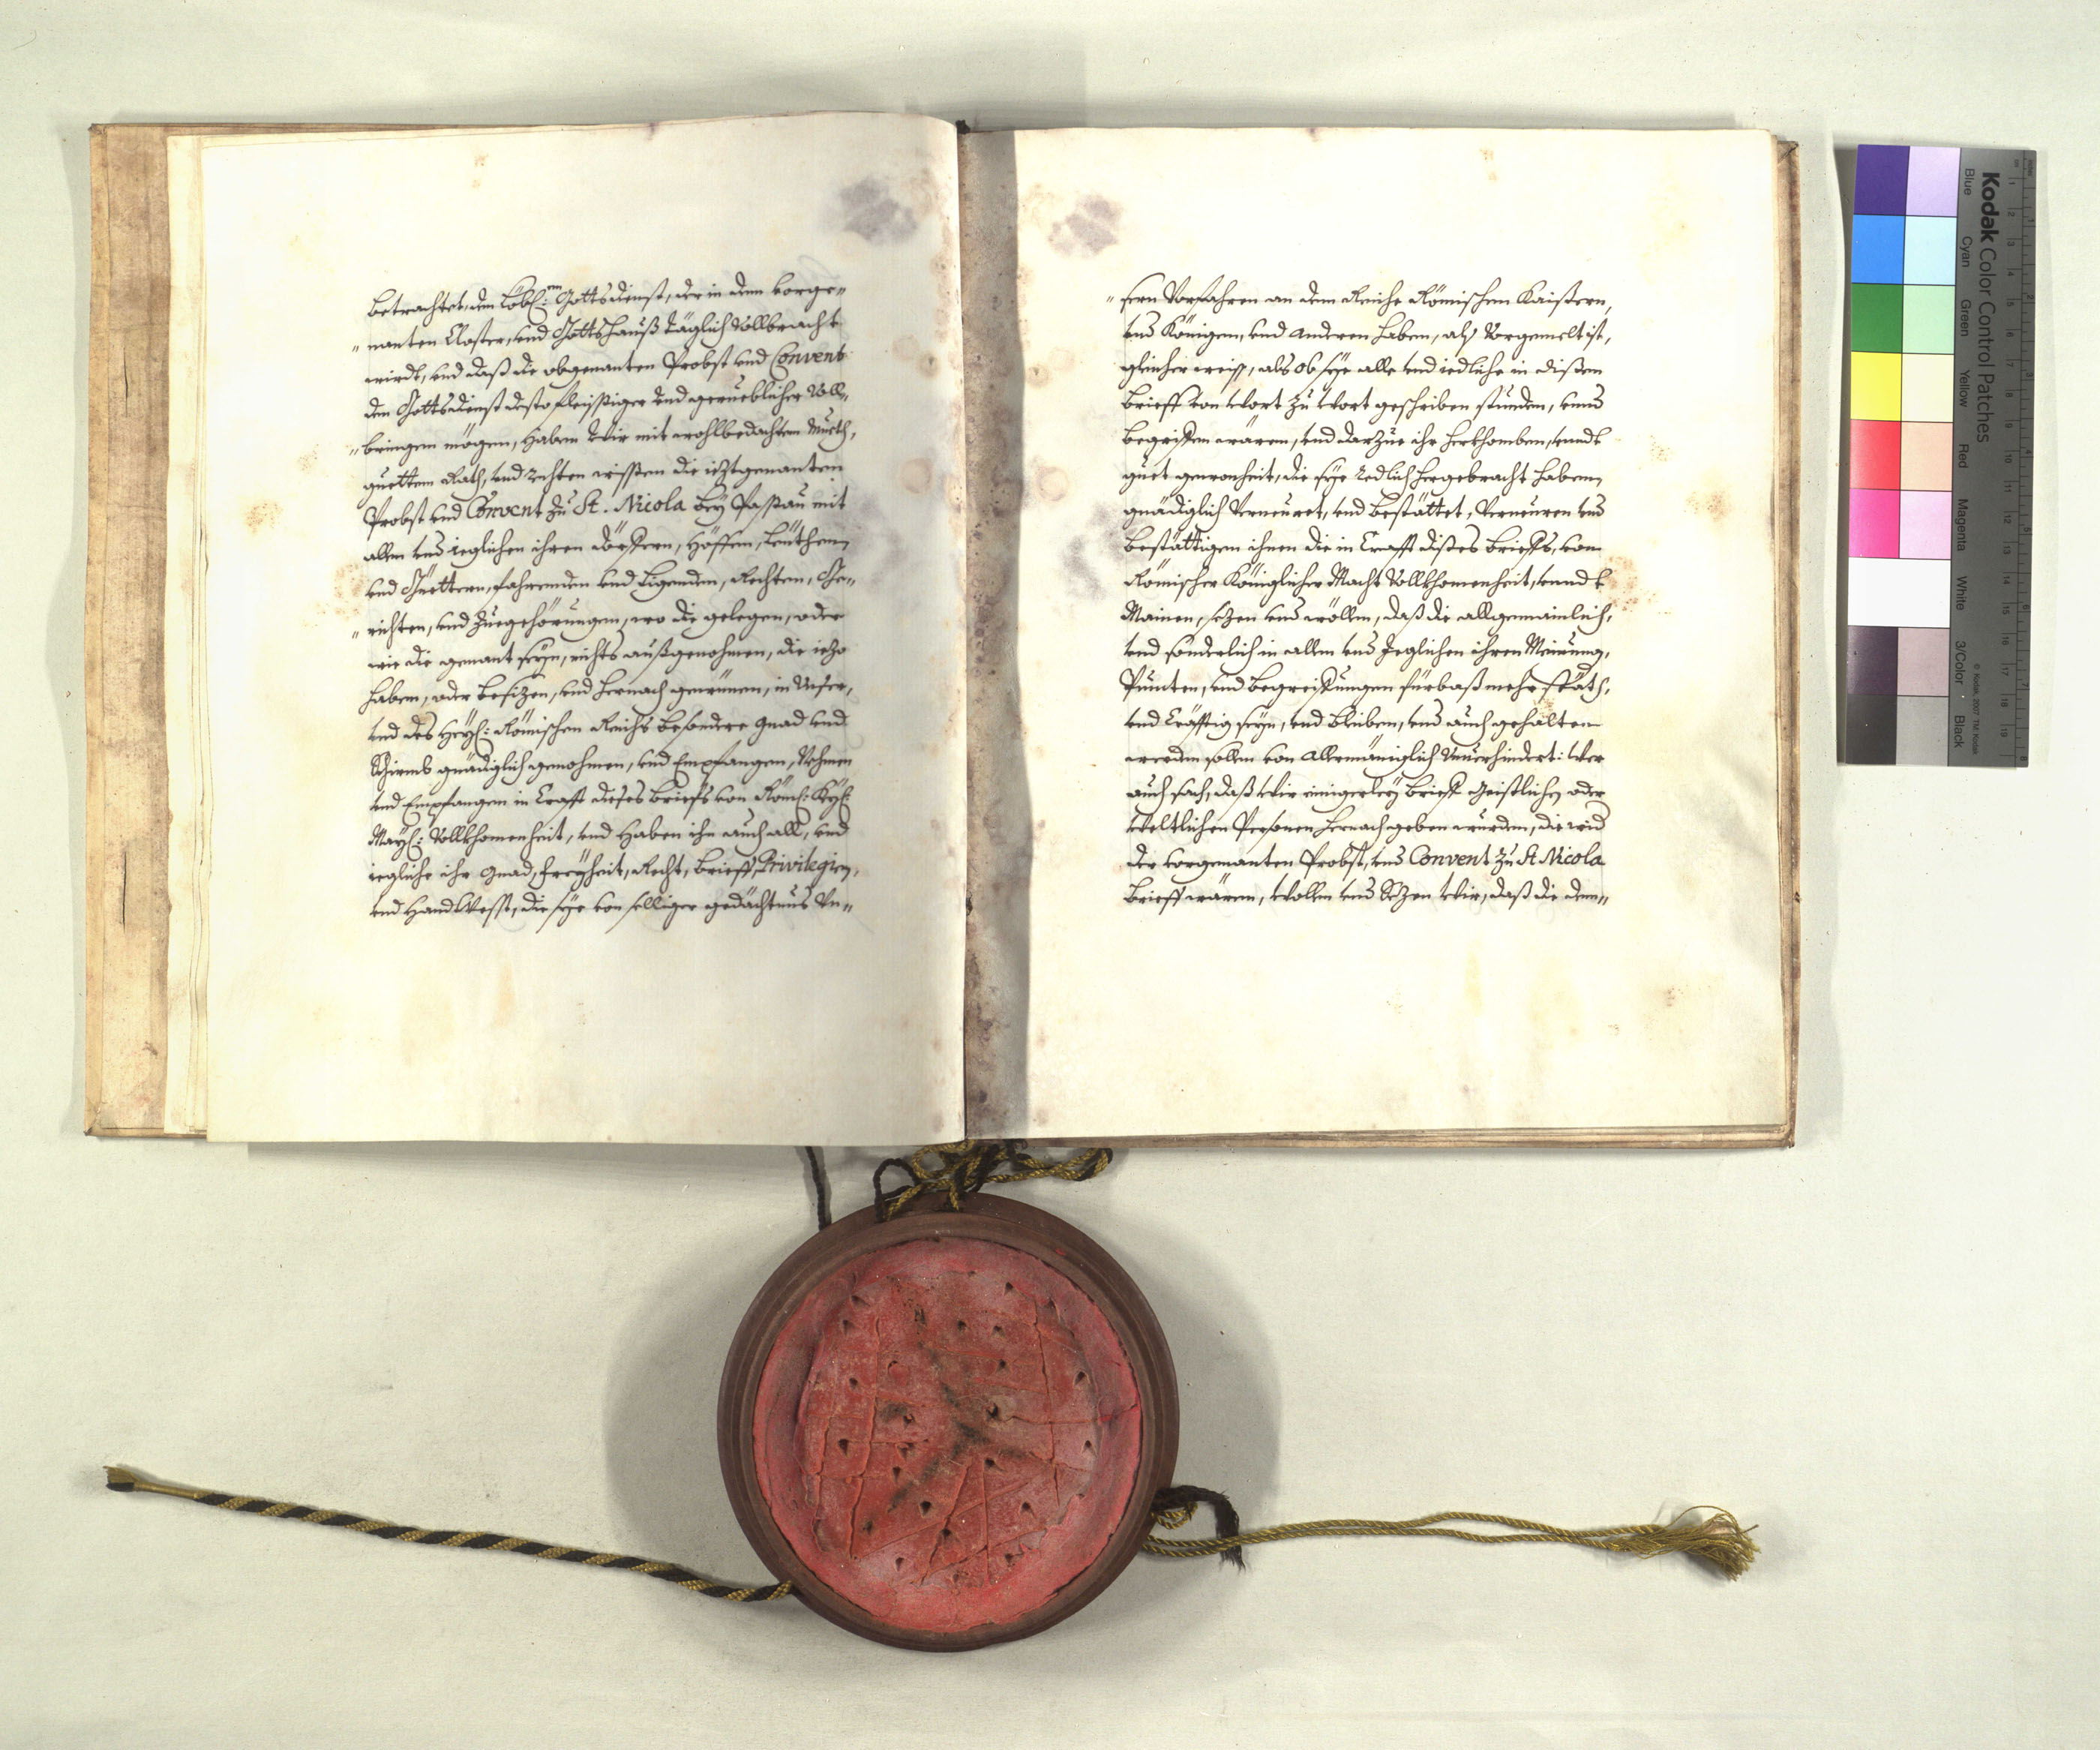 betrachtet, den Löbl:en Gottsdienst, der in dem vorge„
„nanten Closter, und Gottshauß täglich Vollbracht
wirdt, und daß die obgenanten Probst und Convent
den Gottsdienst desto fleissiger und gerueblicher Voll„
„bringen mögen, Haben Wir mit wohlbedachtem Mueth,
guettem Rath, und rechten wissen die ieztgenanten
Probst und Convent zu St. Nicola bey Passau mit
allen und ieglichen ihren dörffern, Höffen, Leüthen,
und Güettern, fahrenden und Ligenden, Rechten, Ge„
„richten, und Zuegehörungen, wo die gelegen, oder
wie die genant seyn, nichts außgenohmen, die iezo
haben, oder besizen, und hernach gewünen, in Unser,
und des Heyl: Römischen Reichs besondere gnad und
Schirmb gnädiglich genohmen, und Empfangen, Nehmen
und Empfangen in Crafft dieses brieffs von Röml: Kyl:
Mayl: Vollkhomenheit, und Haben ihn auch all, und
iegliche ihr gnad, freyheit, Recht, brieff, Privilegien,
und HandVesst, die sye von seeliger gedächtnus Un„
„sern Vorfahren an dem Reiche Römischen Kaißern,
und Königen, und anderen haben, als Vorgemelt ist,
gleicher weiß, als ob sye alle und iedliche in dißem
brieff von Wort zu Wort geschriben stunden, und
begriffen wären, und darzue ihr herkhomben, unndt
guet gewonheit, die sye redlich hergebracht haben,
gnädiglich Verneuret, und bestättet, Verneuren und
bestättigen ihnen die in Crafft dißes brieffs, von
Römischer Königlicher Macht Vollkhomenheit, unndt
Mainen, sezen und wöllen, daß die allgemainlich,
und sonderlich in allen und Jeglichen ihren Meinung,
Puncten, und begreiffungen fürbaß mehr stäth,
und Cräfftig seyn, und bleiben, und auch gehalten
werden sollen von allermäniglich Unverhindert: Wer
auch sach, daß Wir einigerley brieff geistlichen oder
Weltlichen Personen hernach geben wurden, die wid
der vorgenanten Probst, und Convent zu St Nicola
brieff wären, Wollen und Sezen Wir, daß die denn„
Kodak Color Control Patches
Blue Cyan Green Yellow Red Magenta White 3/Color Black
© Kodak, 2007 TM: Kodak